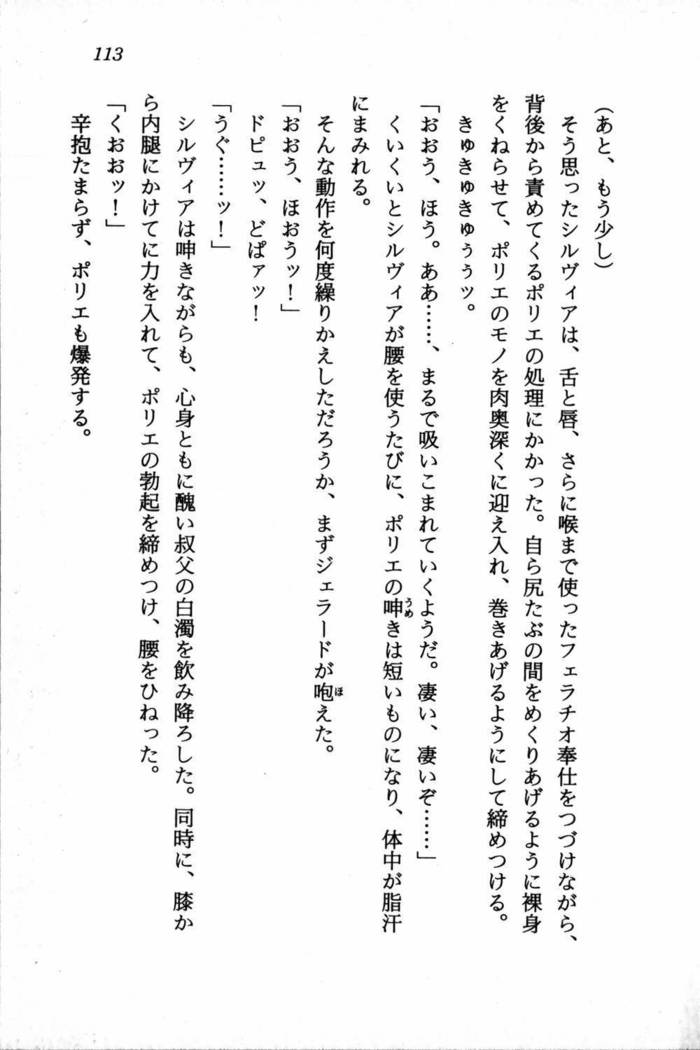 113
(あと、もう少し)
そう思ったシルヴィアは、舌と唇、さらに喉まで使ったフェラチオ奉仕をつづけながら、
背後から責めてくるポリエの処理にかかった。自ら尻たぶの間をめくりあげるように裸身
をくねらせて、ポリエのモノを肉奥深くに迎え入れ、巻きあげるようにして締めつける。
きゅきゅきゅぅぅッ。
「おおう、ほう。ああ……、まるで吸いこまれていくようだ。凄い、凄いぞ……」
くいくいとシルヴィアが腰を使うたびに、ポリエの呻うめきは短いものになり、体中が脂汗
にまみれる。
そんな動作を何度繰りかえしただろうか、まずジェラードが咆ほえた。
「おおう、ほおうッ!」
ドピュッ、どぱァッ!
「うぐ……ッ!」
シルヴィアは呻きながらも、心身ともに醜い叔父の白濁を飲み降ろした。同時に、膝か
ら内腿にかけてに力を入れて、ポリエの勃起を締めつけ、腰をひねった。
「くおおッ!」
辛抱たまらず、ポリエも爆発する。